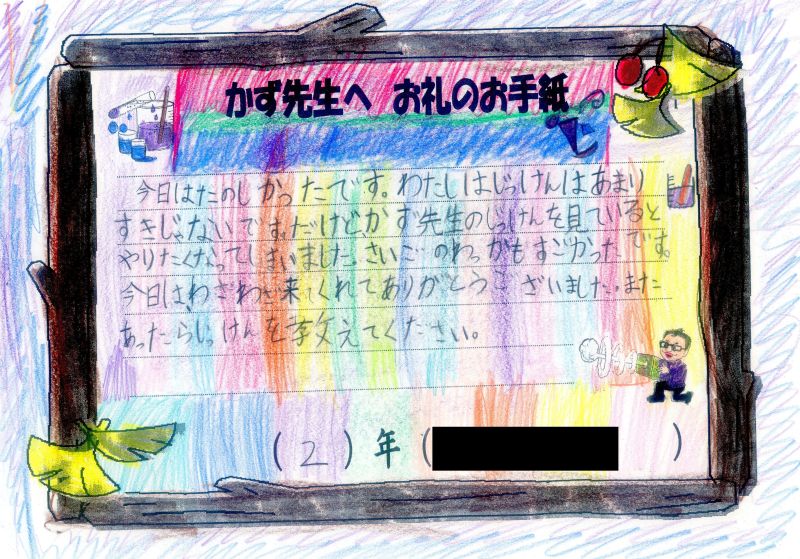 かず先生へ お礼のお手紙
今日はたのしかったです。わたしはじっけんはあまり
すきじゃないですだけどかず先生のじっけんを見ていると
やりたくなってしまいました。さいごのわっかもすごかったです。
今日は、わざわざ来てくれてありがとうございました。また
あったらじっけんを教えてください。
(2)年( )